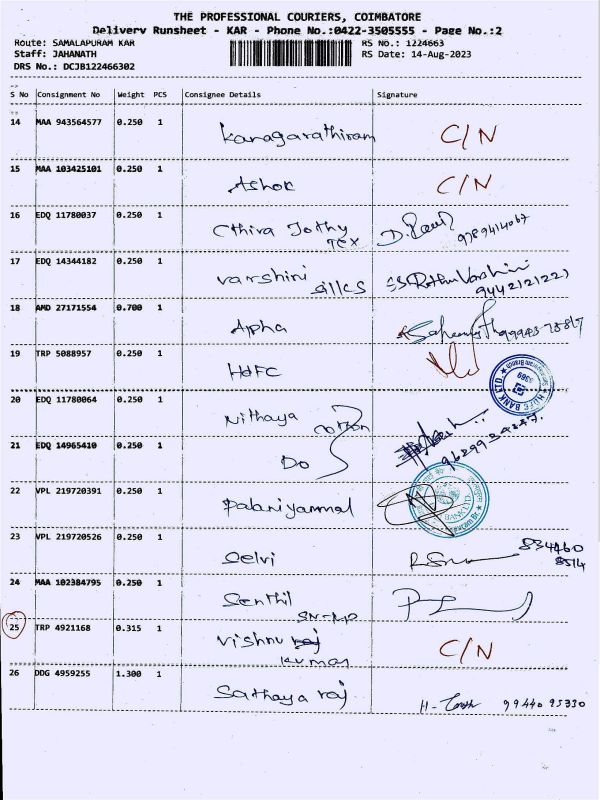 THE PROFESSIONAL COURIERS, COIMBATORE
Delivery Runsheet - KAR - Phone No.:0422-3505555 - Page No.:2
Route: SAMALAPURAM KAR RS No.: 1224663
Staff: JAHANATH RS Date: 14-Aug-2023
DRS No.: DCJB122466302
S No Consignment No Weight PCS Consignee Details Signature
14 MAA 943564577 0.250 1 Kanagarathiram C/N
15 MAA 103425101 0.250 1 Ashok C/N
16 EDQ 11780037 0.250 1 Cthira Jothy
Tex 9789414067
17 EDQ 14344182 0.250 1 varshini
silks 9442121221
18 AMD 27171554 0.700 1 Apha
19 TRP 5088957 0.250 1 HDFC
H.D.F.C. BANK LTD.
20 EDQ 11780064 0.250 1 Nithaya cotton
21 EDQ 14965410 0.250 1 Do
22 VPL 219720391 0.250 1 Palaniyammal
BANK LTD.
23 VPL 219720526 0.250 1 Selvi 834460
8514
24 MAA 102384795 0.250 1 Senthil
25 TRP 4921168 0.315 1 Vishnu raj C/N
kumar
26 DDG 4959255 1.300 1 Sathaya raj 99440 95330